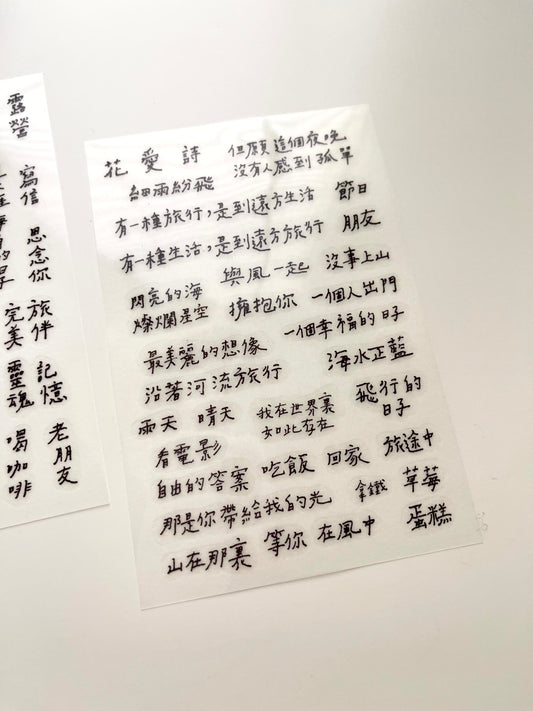 露營
寫信
思念你
完美
旅伴
靈魂
記憶
喝咖啡
老朋友
花 愛 詩
但願這個夜晚
沒有人感到孤單
細雨紛飛
有一種旅行，是到遠方生活
節日
有一種生活，是到遠方旅行
朋友
閃亮的海
與風一起
沒事上山
燦爛星空
擁抱你
一個人出門
最美麗的想像
一個幸福的日子
沿著河流旅行
海水正藍
雨天
晴天
我在世界裏
如此存在
飛行的
日子
看電影
自由的答案
吃飯
回家
旅途中
那是你帶給我的光
拿鐵
草莓
山在那裏
等你
在風中
蛋糕